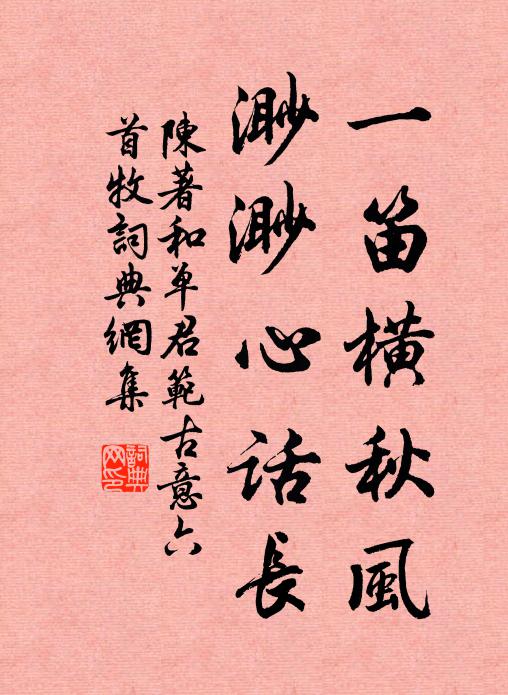 一笛橫秋風
渺渺心话長
陳著和单君範古意六
首牧詞典網集
詞典网印